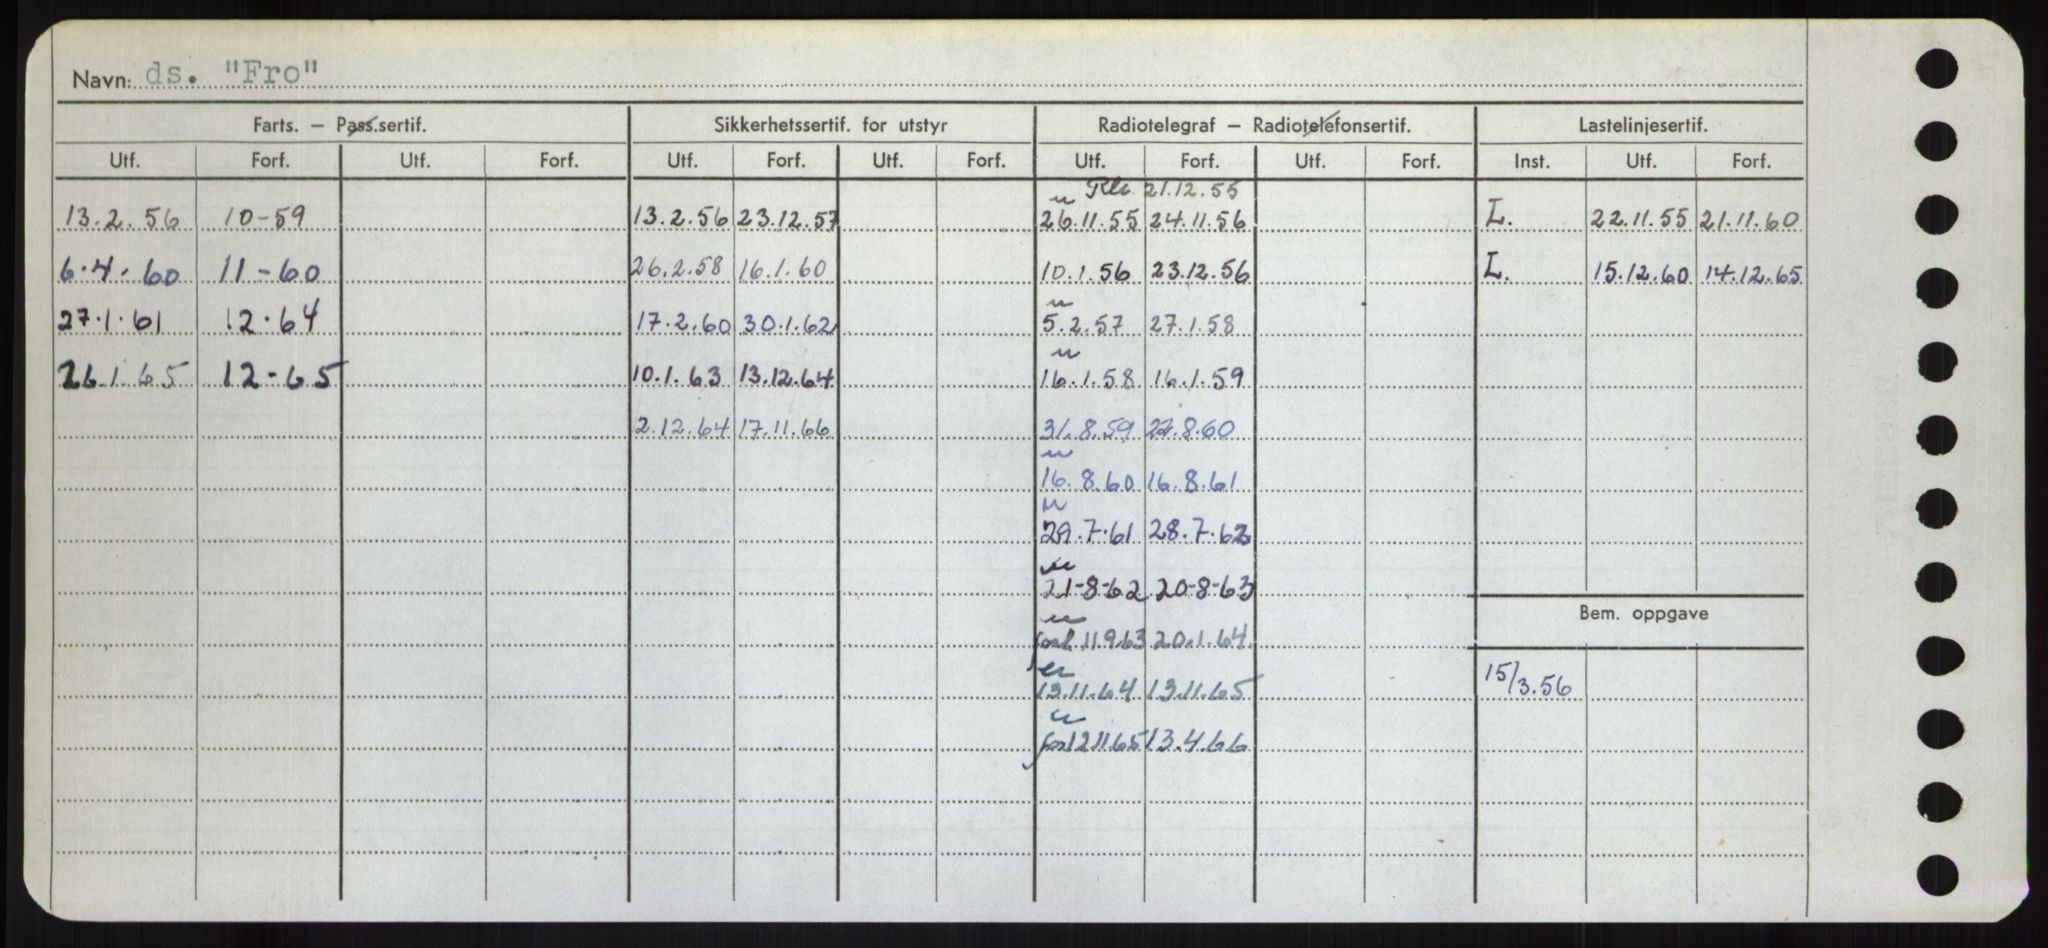 Navn: ds. "Fro"
Farts. – Pass.sertif. Sikkerhetssertif. for utstyr Radiotelegraf – Radiotelefonsertif. Lastelinjesertif.
Utf. Forf. Utf. Forf. Utf. Forf. Utf. Forf. Utf. Forf. Utf. Forf. Inst. Utf. Forf.
21.12.55
13.2.56 10-59 13.2.56 23.12.57 26.11.55 24.11.56 L. 22.11.55 21.11.60
6.4.60 11-60 26.2.58 16.1.60 10.1.56 23.12.56 L. 15.12.60 14.12.65
27.1.61 12.64 17.2.60 30.1.62 5.2.57 27.1.58
26.1.65 12-65 10.1.63 13.12.64 16.1.58 16.1.59
2.12.64 17.11.66 31.8.59 22.8.60
16.8.60 16.8.61
29.7.61 28.7.62
21-8-62 20-8-63
Bem. oppgave
forl 11.9.63 20.1.64
15/3.56
13.11.64 13.11.65
12.11.65 13.4.66